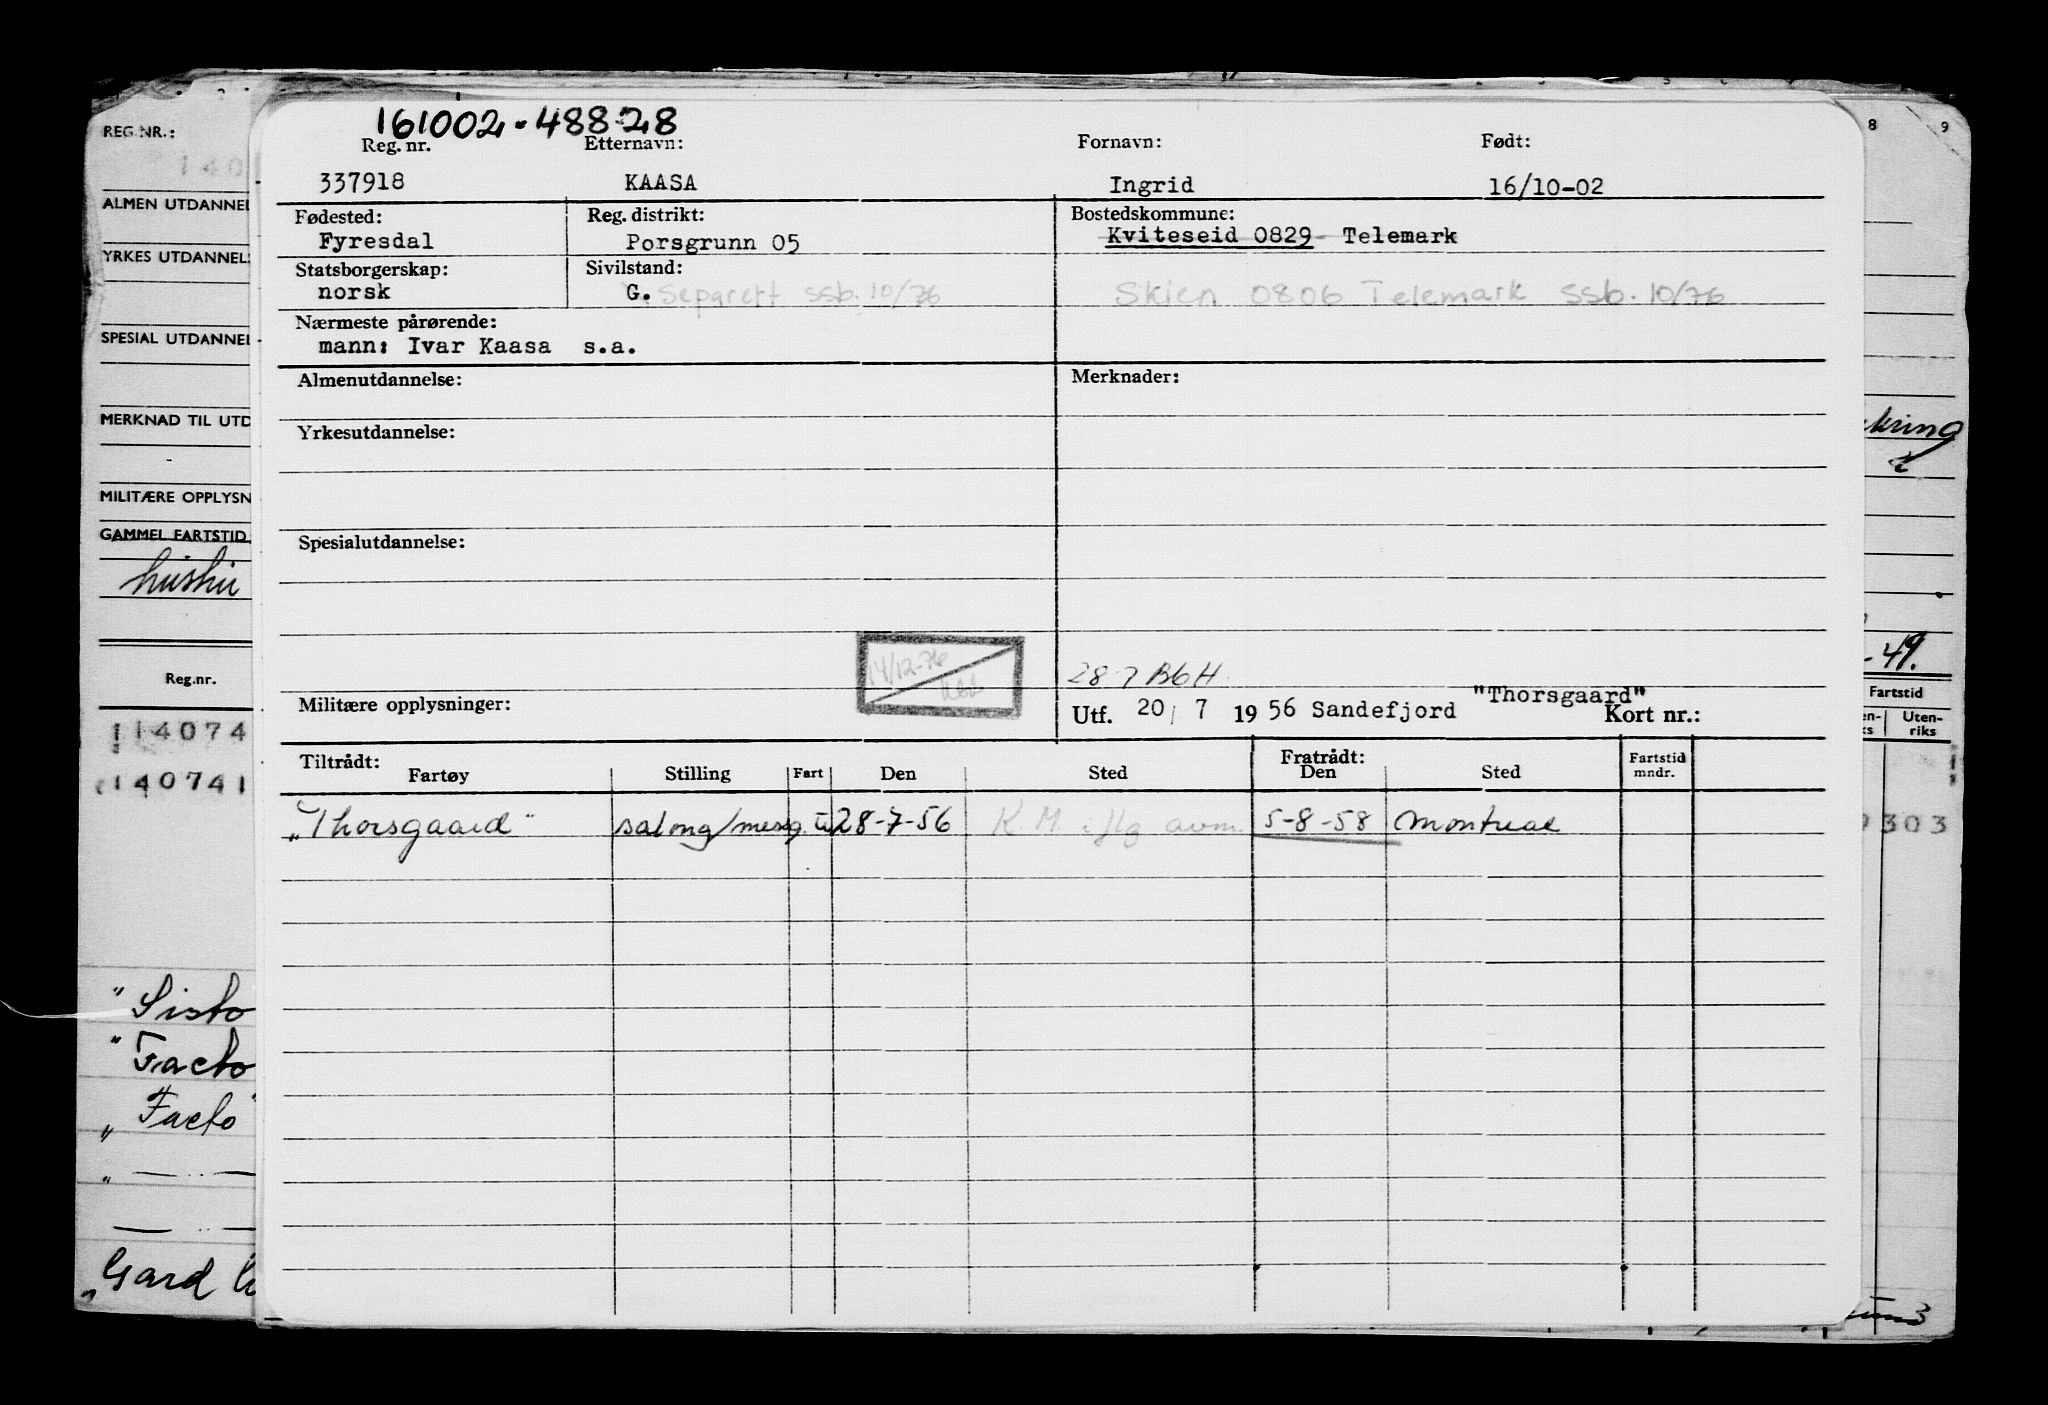 161002-48828
Reg. nr. Etternavn: Fornavn: Født:
337918 KAASA Ingrid 16/10-02
Fødested: Reg. distrikt: Bostedskommune:
Fyresdal Porsgrunn 05 Kviteseid 0829 Telemark
Statsborgerskap: Sivilstand:
norsk G. Separert ssb. 10/76 Skien 0806 Telemark ssb. 10/76
Nærmeste pårørende:
mann: Ivar Kaasa s.a.
Almenutdannelse: Merknader:
Yrkesutdannelse:
Spesialutdannelse:
14/12-76
28-7 B6H
Militære opplysninger: Utf. 20/ 7 19 56 Sandefjord "Thorsgaard" Kort nr.:
Tiltrådt: Fratrådt:
Fartøy Stilling Fart Den Sted Den Sted Fartstid mndr.
"Thorsgaard" salong/messg. U 28-7-56 K.M. iflg avm. 5-8-58 Montreal
REG.NR.:
140
ALMEN UTDANNEL
YRKES UTDANNELS
SPESIAL UTDANNEL
MERKNAD TIL UTD
MILITÆRE OPPLYSN
GAMMEL FARTSTID
Reg.nr.
114074
140741
"Sisto
"Facto
"Facto"
"Gard
8 9
-49.
Fartstid
Uten-
riks
303